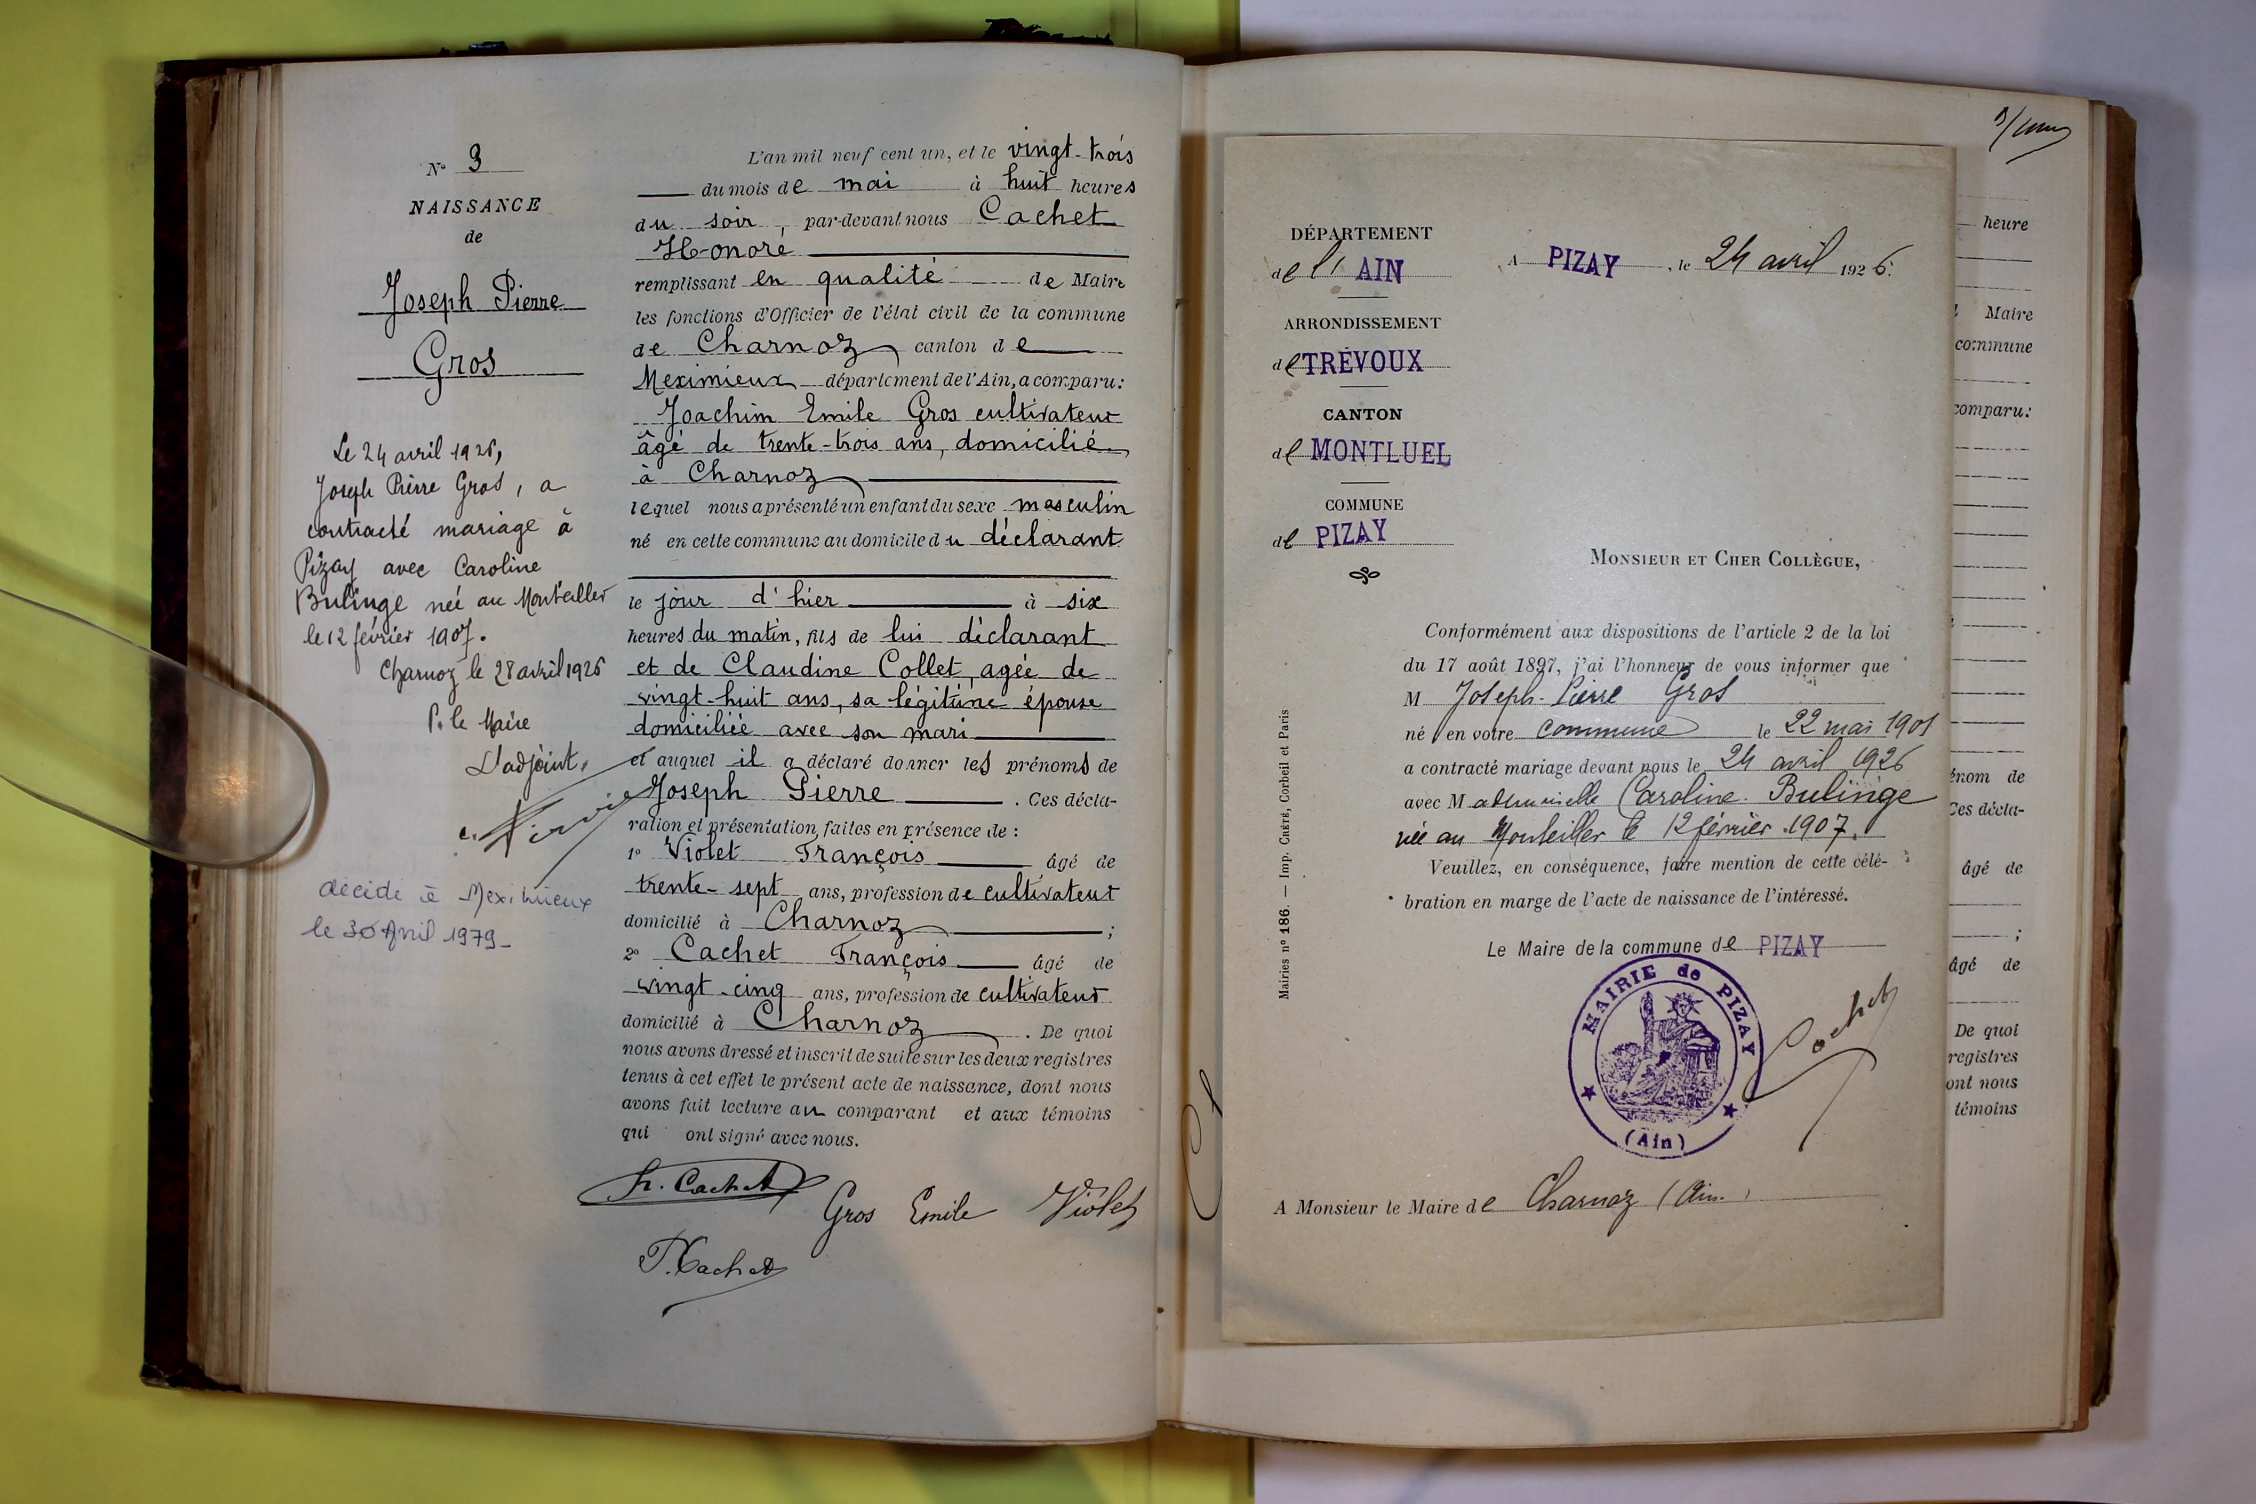 N° 3
NAISSANCE
de
Joseph Pierre
Gros
Le 24 avril 1926,
Joseph Pierre Gros, a
contracté mariage à
Pizay avec Caroline
Bulinge née au Montellier
le 12 février 1907.
Charnoz le 28 avril 1926
P. le Maire
L'adjoint,
décédé à Meximieux
le 30 Avril 1979-
L'an mil neuf cent un, et le vingt-trois
du mois de mai à huit heures
du soir, par-devant nous Cachet
Honoré
remplissant en qualité de Maire
les fonctions d'Officier de l'état civil de la commune
de Charnoz canton de
Meximieux département de l'Ain, a comparu:
Joachim Emile Gros cultivateur
âgé de trente-trois ans, domicilié
à Charnoz
lequel nous a présenté un enfant du sexe masculin
né en cette commune au domicile du déclarant
le jour d'hier à six
heures du matin, fils de lui déclarant
et de Claudine Collet, agée de
vingt-huit ans, sa légitime épouse
domiciliée avec son mari
et auquel il a déclaré donner les prénoms de
Joseph Pierre . Ces décla-
ration et présentation faites en présence de :
1° Violet François âgé de
trente-sept ans, profession de cultivateur
domicilié à Charnoz ;
2° Cachet François âgé de
vingt-cinq ans, profession de cultivateur
domicilié à Charnoz . De quoi
nous avons dressé et inscrit de suite sur les deux registres
tenus à cet effet le présent acte de naissance, dont nous
avons fait lecture au comparant et aux témoins
qui ont signé avec nous.
H. Cachet
Gros Emile Violet
F. Cachet
DÉPARTEMENT
de l' AIN
ARRONDISSEMENT
de TRÉVOUX
CANTON
de MONTLUEL
COMMUNE
de PIZAY
A PIZAY, le 24 avril 1926.
MONSIEUR ET CHER COLLÈGUE,
Conformément aux dispositions de l'article 2 de la loi
du 17 août 1897, j'ai l'honneur de vous informer que
M Joseph-Pierre Gros
né en votre commune le 22 mai 1901
a contracté mariage devant nous le 24 avril 1926
avec Mademoiselle Caroline Bulinge
née au Montellier le 12 février 1907.
Veuillez, en conséquence, faire mention de cette célé-
bration en marge de l'acte de naissance de l'intéressé.
Le Maire de la commune de PIZAY
MAIRIE de PIZAY
(Ain)
Cochet
A Monsieur le Maire de Charnoz (Ain.)
Mairies n° 186. — Imp. CRÉTÉ, Corbeil et Paris
heure
Maire
commune
comparu:
énom de
Ces décla-
âgé de
;
âgé de
De quoi
registres
ont nous
témoins